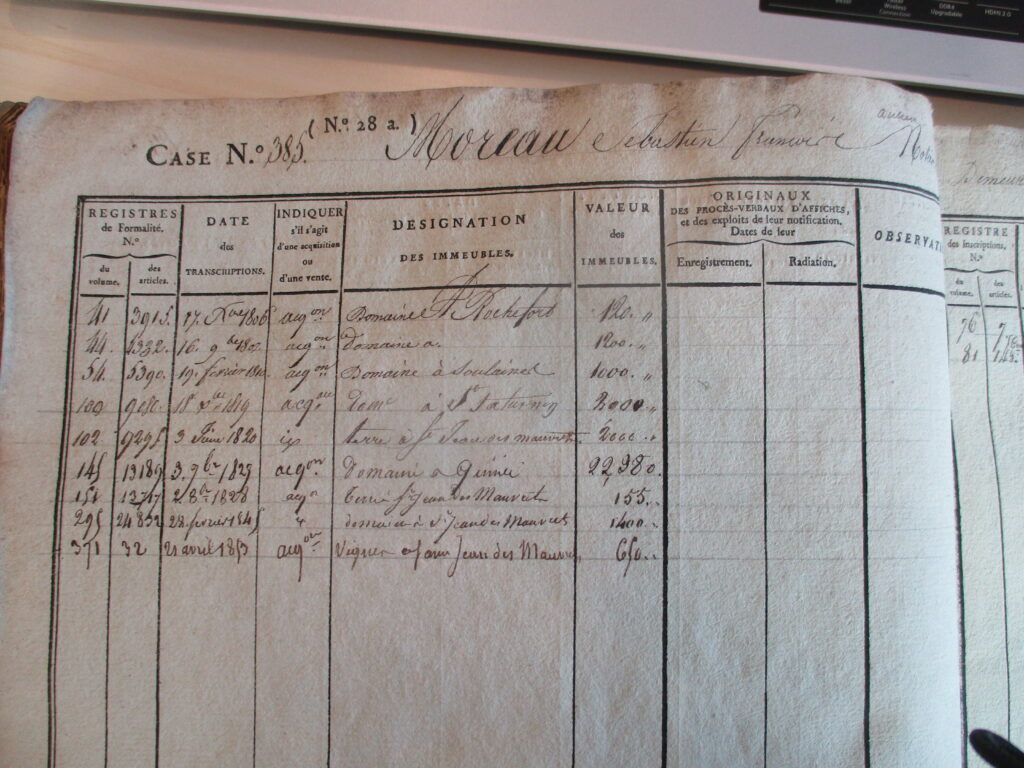 (N.º 28 a.)
CASE N.º 385. Moreau Sebastien francois ancien
REGISTRES de Formalité. N.º
du volume. des articles.
DATE des TRANSCRIPTIONS.
INDIQUER s'il s'agit d'une acquisition ou d'une vente.
DESIGNATION DES IMMEUBLES.
VALEUR des IMMEUBLES.
ORIGINAUX DES PROCÈS-VERBAUX D'AFFICHES, et des exploits de leur notification. Dates de leur
Enregistrement. Radiation.
OBSERVAT
REGISTRE des inscriptions, N.º
du volume. des articles.
Demeur
41 3915. 17. 1806 acqon Domaine à Rochefort 120. „
44. 1332. 16. 9bre acqon Domaine a. 1200. „
54. 5390. 19. fevrier acqon Domaine à Soulaines 1000. „
100 9080. 1819 acqon dome à St Saturnin 2000. „
102 9295 3 Juin 1820 terre à St Jean des mauvrets 2000 „
145 13189 3. 9bre 1829 acqon domaine a 22,980.
151 13717 8bre 1828 acqon terre St Jean des Mauvrets 155.
295 24832 28 fevrier 1845 „ domaine à St Jean des Mauvrets 1400.
371 32 21 avril 1853 acqon Vignes Jean des Mauvr 650.
76
81